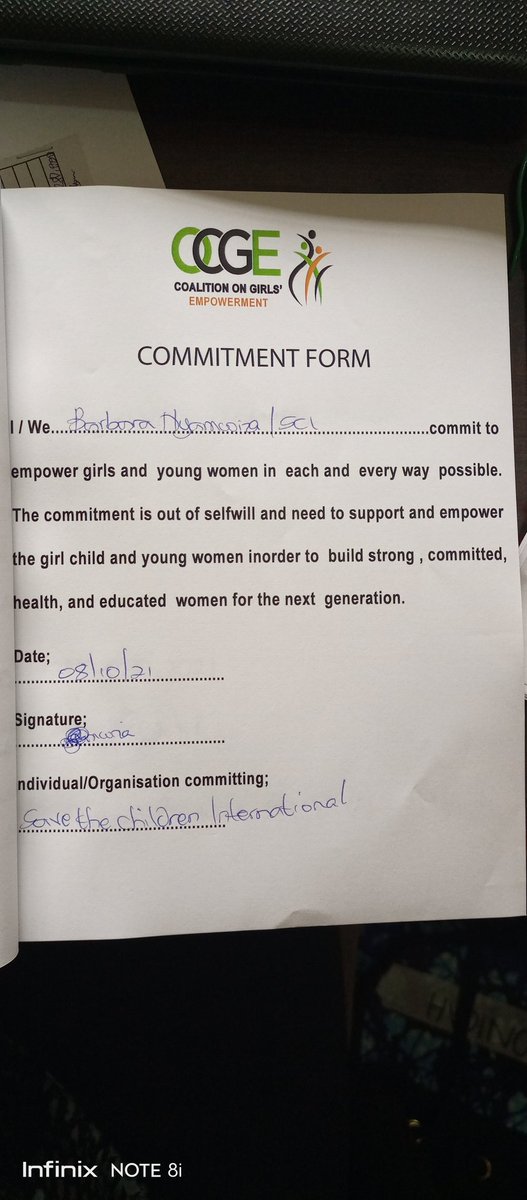 OCGE
COALITION ON GIRLS'
EMPOWERMENT
COMMITMENT FORM
I / We....Barbara / SCI....commit to
empower girls and young women in each and every way possible.
The commitment is out of selfwill and need to support and empower
the girl child and young women inorder to build strong , committed,
health, and educated women for the next generation.
Date;
08/10/21
Signature;
ndividual/Organisation committing;
Save the children International
HIDING
Infinix NOTE 8i